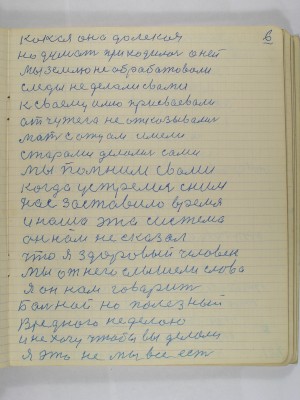 6
какая она далекая
но думат приходилос о ней
мы землю не обрабатовали
следы не делали свами
к своему имю присваевали
от чужега не отказывалис
мат с отцам имели
старалис делалис сами
мы помним свами
когда устремил сним
нас заставило время
и наша эта система
он нам не сказал
что я здоровый человек
мы от него слышели слова
я он нам говарит
балной но полезный
вредного не делаю
и не хочу чтобы вы делали
я это не мы все ест